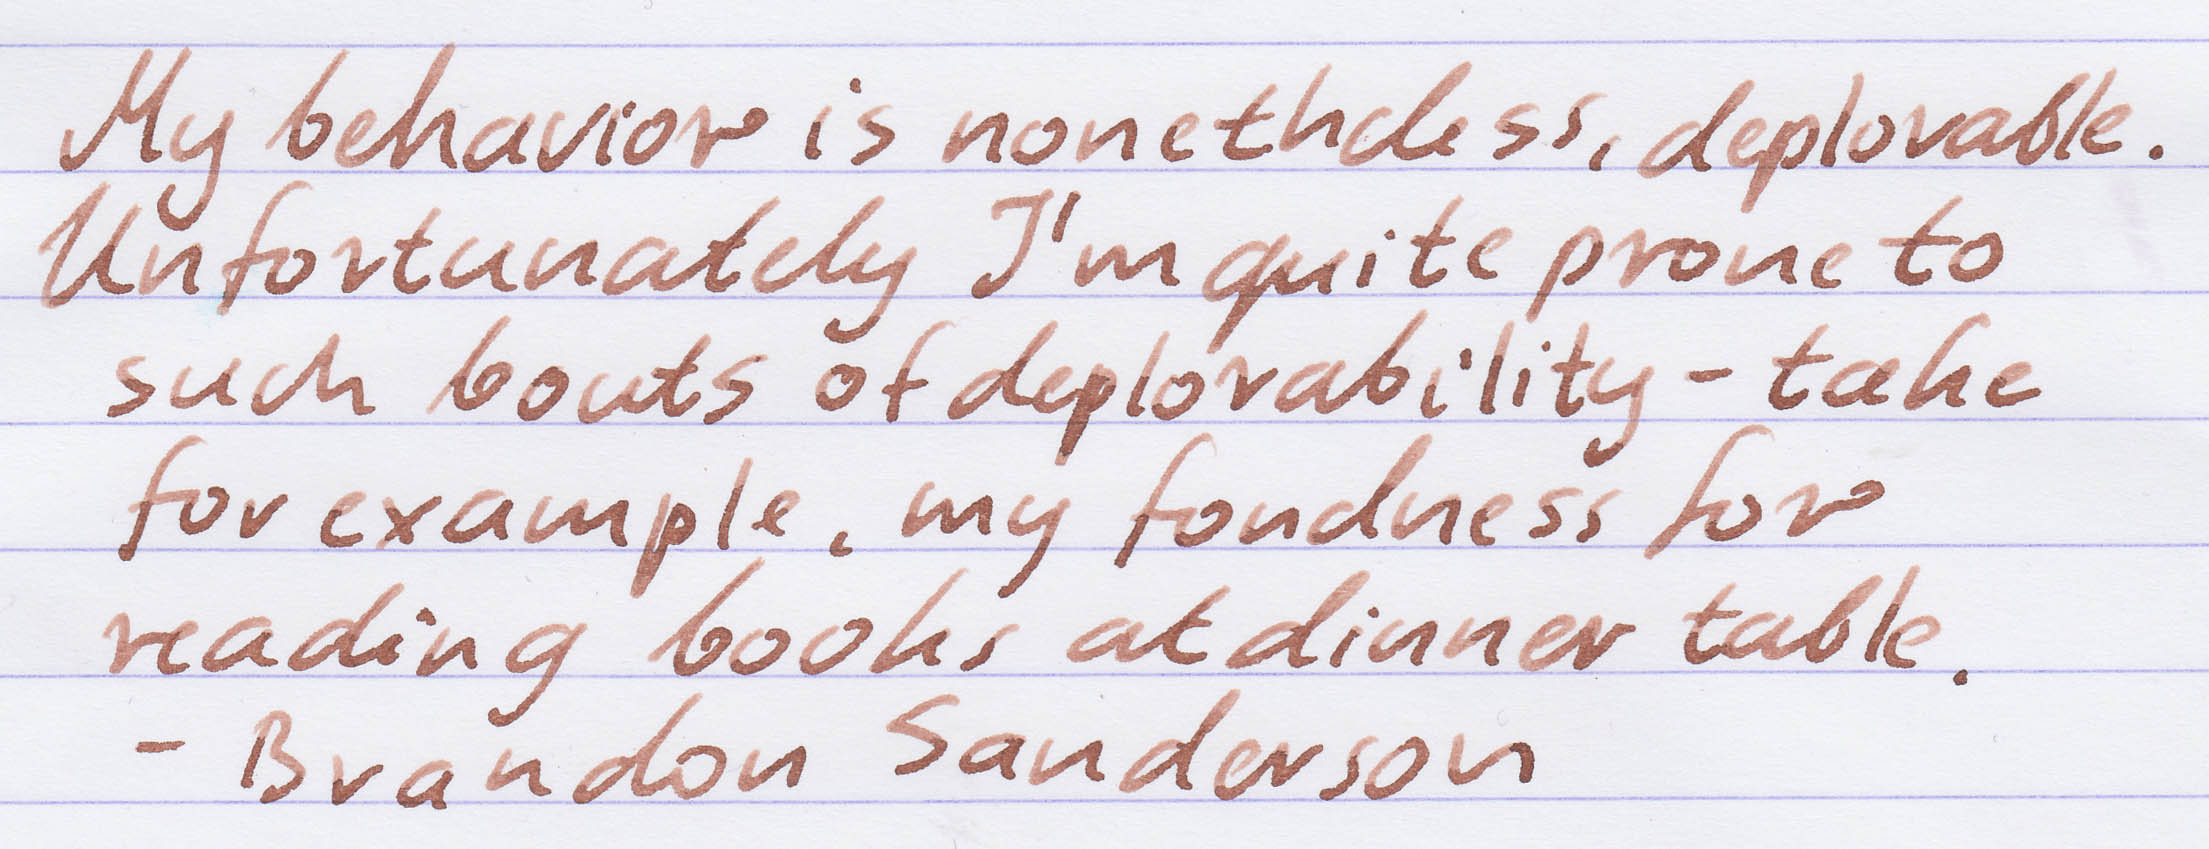 My behavior is nonetheless, deplorable.
Unfortunately I'm quite prone to
such bouts of deplorability - take
for example, my fondness for
reading books at dinner table.
- Brandon Sanderson